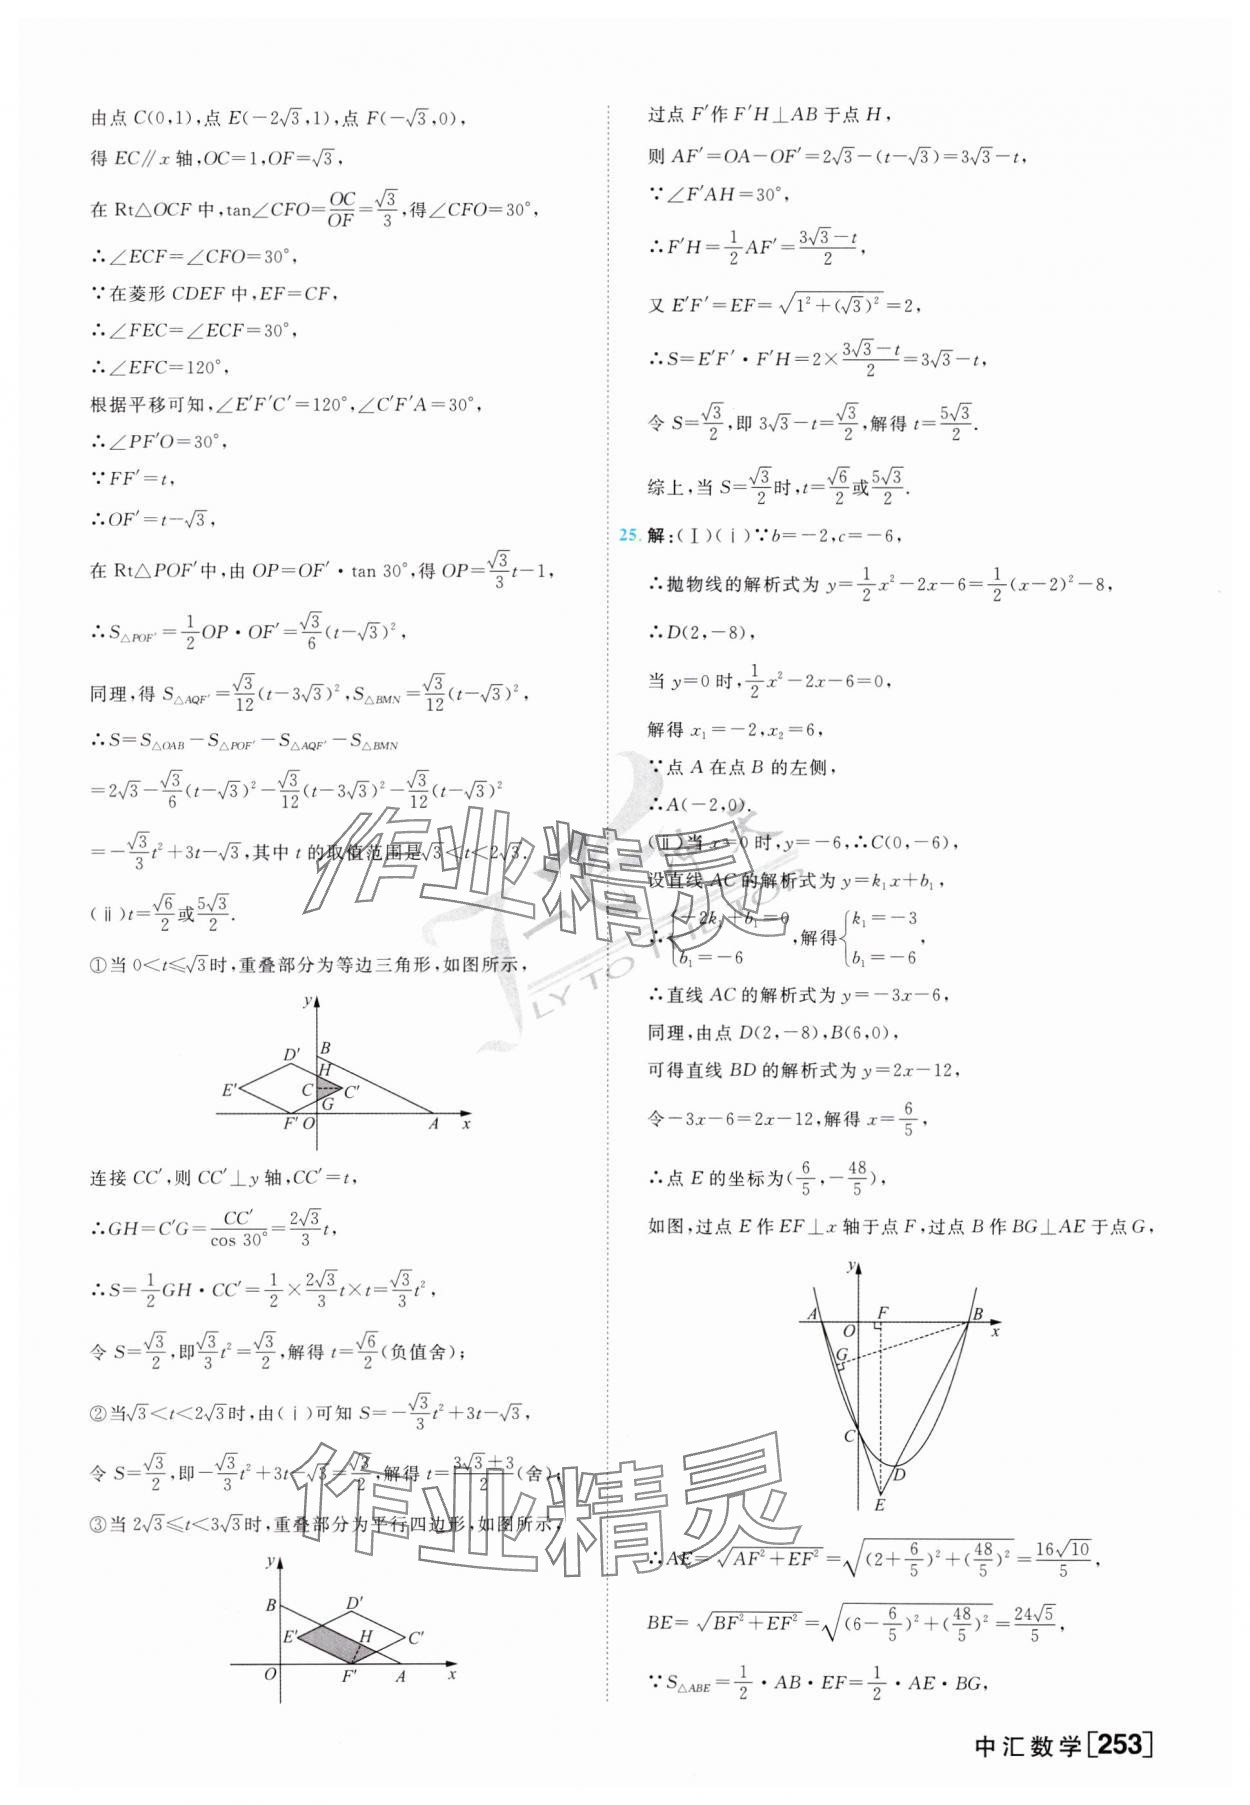 由点 C(0,1),点 E(-2√3,1),点 F(-√3,0),
得 EC∥x 轴,OC=1,OF=√3,
在 Rt△OCF 中,tan∠CFO=OC/OF=√3/3,得∠CFO=30°,
∴∠ECF=∠CFO=30°,
∵在菱形 CDEF 中,EF=CF,
∴∠FEC=∠ECF=30°,
∴∠EFC=120°,
根据平移可知,∠E′F′C′=120°,∠C′F′A=30°,
∴∠PF′O=30°,
∵FF′=t,
∴OF′=t-√3,
在 Rt△POF′中,由 OP=OF′·tan 30°,得 OP=√3/3 t-1,
∴S△POF′=1/2 OP·OF′=√3/6 (t-√3)²,
同理,得 S△AQF′=√3/12 (t-3√3)²,S△BMN=√3/12 (t-√3)²,
∴S=S△OAB-S△POF′-S△AQF′-S△BMN
=2√3-√3/6 (t-√3)²-√3/12 (t-3√3)²-√3/12 (t-√3)²
=-√3/3 t²+3t-√3,其中 t 的取值范围是√3<t<2√3.
(ⅱ)t=√6/2或5√3/2.
①当 0<t≤√3时,重叠部分为等边三角形,如图所示,
y
D′
B
H
E′
C
C′
G
F′
O
A
x
连接 CC′,则 CC′⊥y 轴,CC′=t,
∴GH=C′G=CC′/cos 30°=2√3/3 t,
∴S=1/2 GH·CC′=1/2×2√3/3 t×t=√3/3 t²,
令 S=√3/2,即√3/3 t²=√3/2,解得 t=√6/2(负值舍);
②当√3<t<2√3时,由(ⅰ)可知 S=-√3/3 t²+3t-√3,
令 S=√3/2,即-√3/3 t²+3t-√3=√3/2,解得 t=(3√3+3)/2(舍);
③当 2√3≤t<3√3时,重叠部分为平行四边形,如图所示,
y
B
D′
E′
H
C′
O
F′
A
x
过点 F′作 F′H⊥AB于点 H,
则 AF′=OA-OF′=2√3-(t-√3)=3√3-t,
∵∠F′AH=30°,
∴F′H=1/2 AF′=(3√3-t)/2,
又 E′F′=EF=√(1²+(√3)²)=2,
∴S=E′F′·F′H=2×(3√3-t)/2=3√3-t,
令 S=√3/2,即 3√3-t=√3/2,解得 t=5√3/2.
综上,当 S=√3/2时,t=√6/2或5√3/2.
25. 解:(Ⅰ)(ⅰ)∵b=-2,c=-6,
∴抛物线的解析式为 y=1/2 x²-2x-6=1/2 (x-2)²-8,
∴D(2,-8),
当 y=0 时,1/2 x²-2x-6=0,
解得 x₁=-2,x₂=6,
∵点 A 在点 B 的左侧,
∴A(-2,0).
(ⅱ)当 x=0 时,y=-6,∴C(0,-6),
设直线 AC 的解析式为 y=k₁x+b₁,
∴{-2k₁+b₁=0, b₁=-6,解得{k₁=-3, b₁=-6,
∴直线 AC 的解析式为 y=-3x-6,
同理,由点 D(2,-8),B(6,0),
可得直线 BD 的解析式为 y=2x-12,
令-3x-6=2x-12,解得 x=6/5,
∴点 E 的坐标为(6/5,-48/5),
如图,过点 E 作 EF⊥x 轴于点 F,过点 B 作 BG⊥AE 于点 G,
y
A
F
B
O
x
G
C
D
E
∴AE=√(AF²+EF²)=√((2+6/5)²+(48/5)²)=16√10/5,
BE=√(BF²+EF²)=√((6-6/5)²+(48/5)²)=24√5/5,
∵S△ABE=1/2·AB·EF=1/2·AE·BG,
中汇数学[253]
作业精灵
作业精灵
LY TO THE TOP